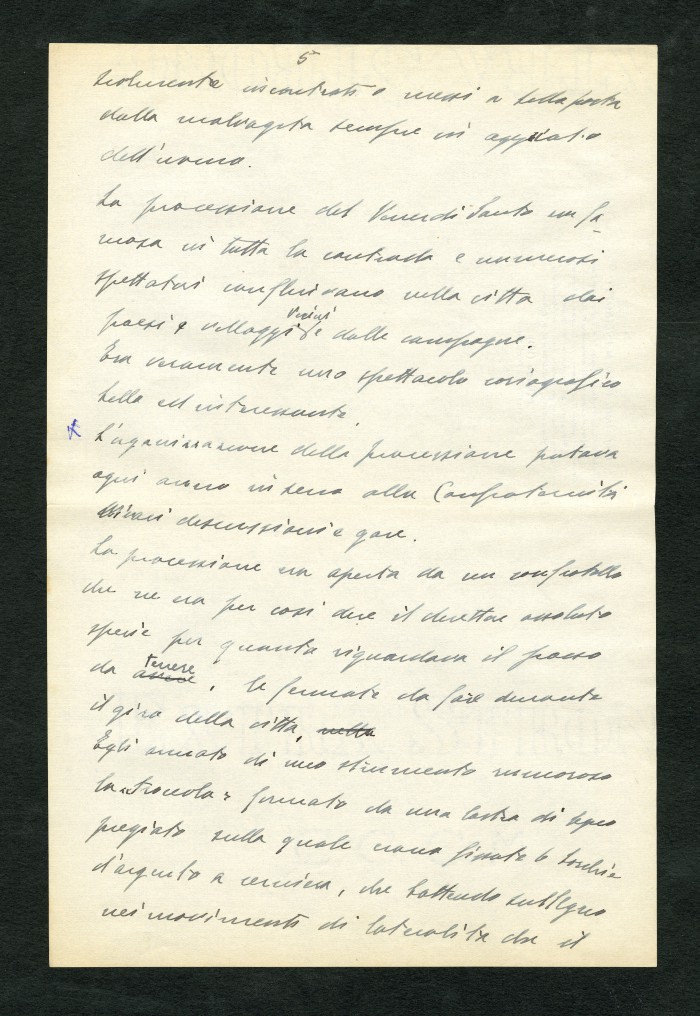 5
incontrati o messi a
dalla malvagità sempre in agguato
dell'uomo.
La processione del Venerdì Santo era fa-
mosa in tutta la contrada e numerosi
spettatori confluivano nella città dai
paesi e villaggi vicini e dalle campagne.
Era veramente uno spettacolo coreografico
bello ed interessante.
x L'organizzazione della processione portava
ogni anno in seno alle Confraternite
discussioni e gare.
La processione era aperta da un confratello
che ne era per così dire il direttore assoluto
specie per quanto riguardava il passo
da avere tenere, le fermate da fare durante
il giro della città, nella
Egli armato di uno strumento rumoroso
la "troccola" formato da una lastra di legno
pregiato sulla quale erano fissate 6 borchie
d'argento a cerniera, che battendo sul legno
nei movimenti di lateralità che il